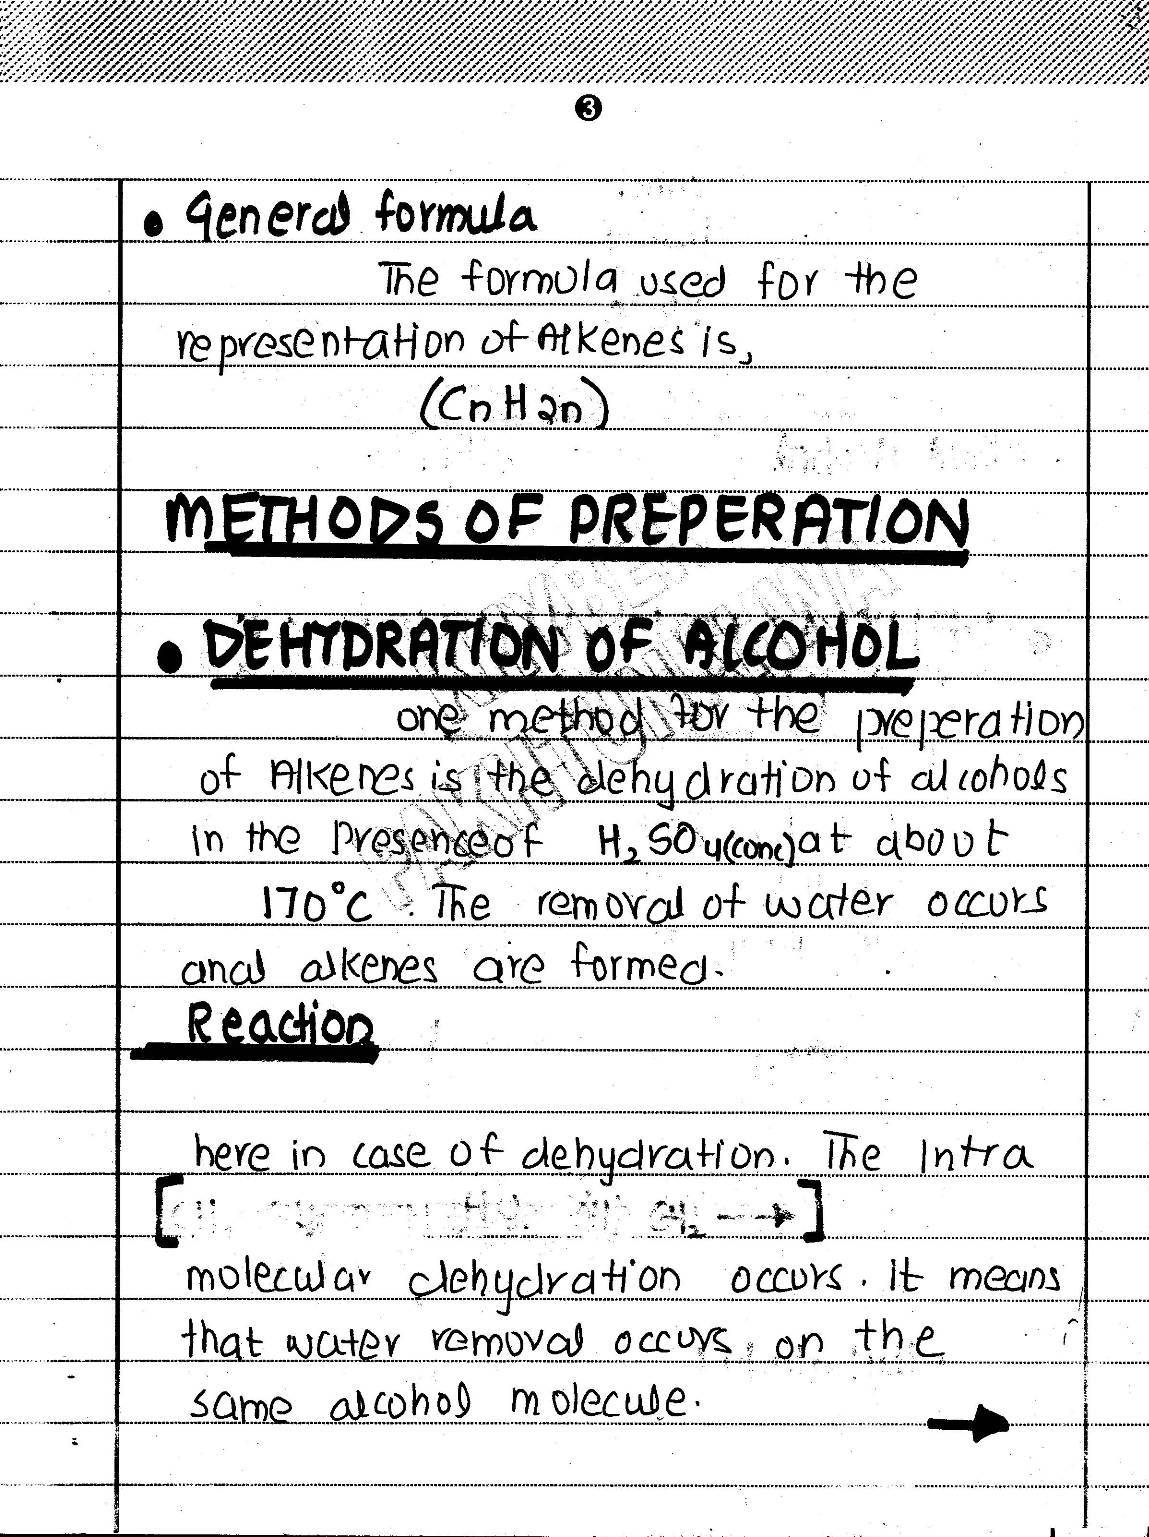 3
• General formula
The formula used for the
representation of Alkenes is,
(CnH2n)
METHODS OF PREPERATION
• DEHYDRATION OF ALCOHOL
one method for the preperation
of Alkenes is the dehydration of alcohols
in the presence of H₂SO4(conc) at about
170°C. The removal of water occurs
and alkenes are formed.
Reaction
here in case of dehydration. The Intra
[ CH₂ --→ ]
molecular dehydration occurs. it means
that water removal occurs on the
same alcohol molecule.
→